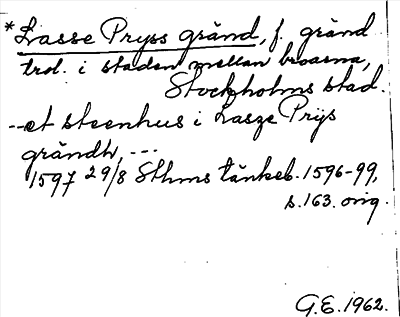 *Lasse Pryss gränd, f. gränd
trol. i staden mellan broarna,
Stockholms stad.
--et steenhus i Lasze Prÿs
grändh, ---
1597 29/8 Sthms tänkeb. 1596-99,
s.163. orig.
G.E. 1962.